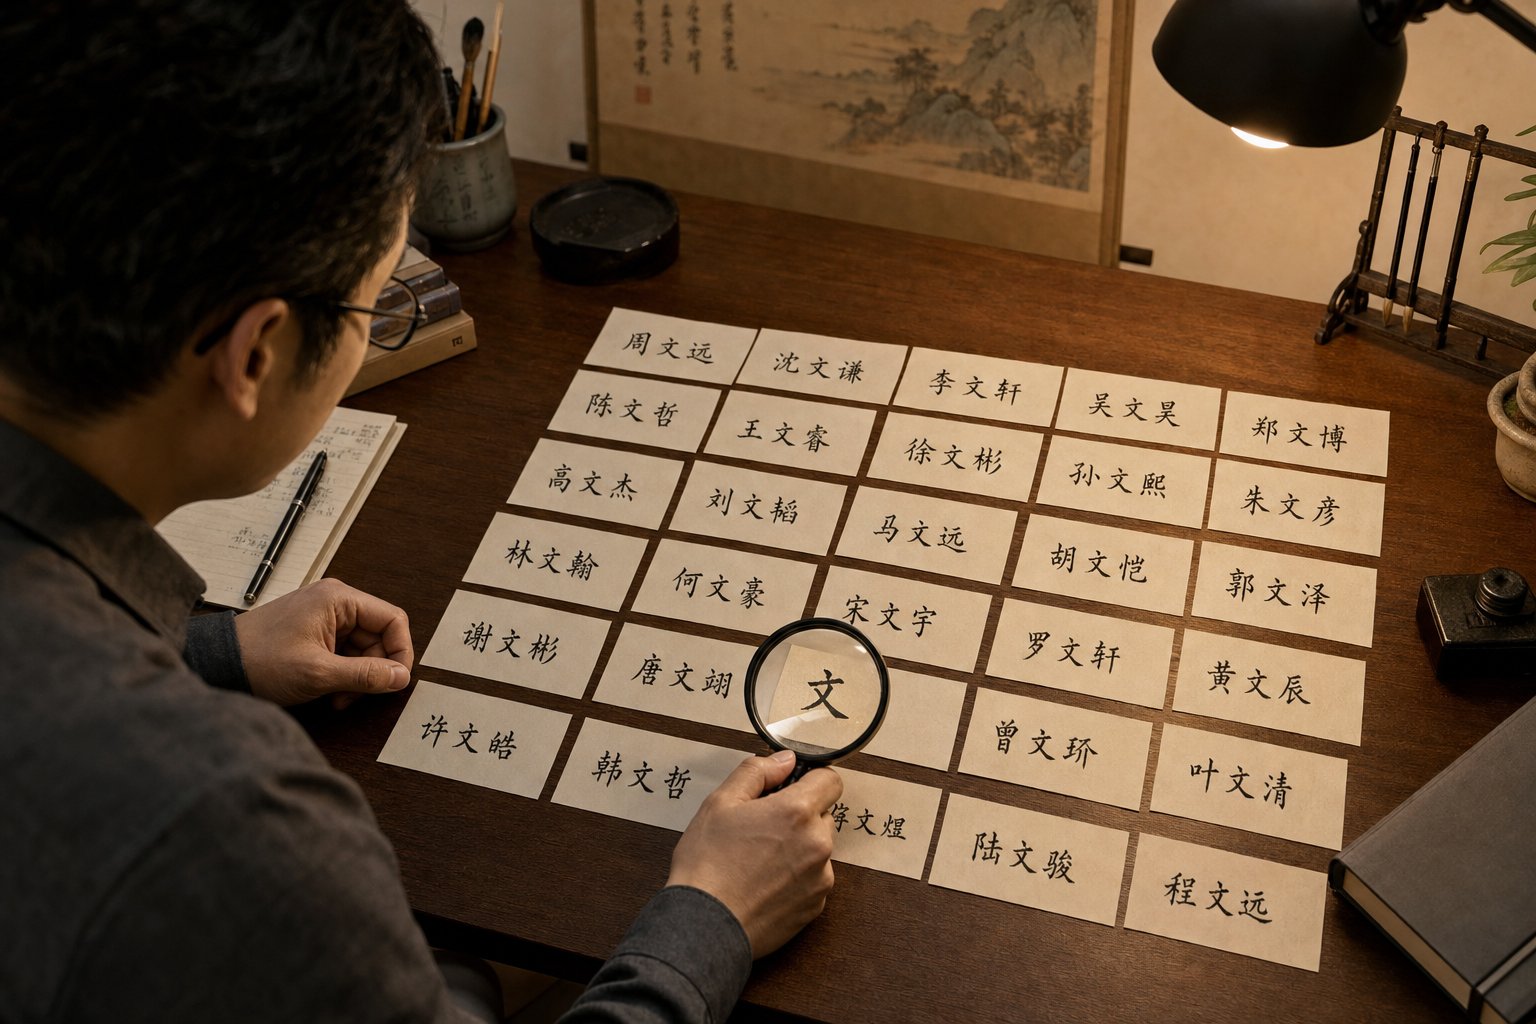 周文远
沈文谦
李文轩
吴文昊
郑文博
陈文哲
王文睿
徐文彬
孙文熙
朱文彦
高文杰
刘文韬
马文远
胡文恺
郭文泽
林文翰
何文豪
宋文宇
罗文轩
黄文辰
谢文彬
唐文翊
文
曾文玠
叶文清
许文皓
韩文哲
文煜
陆文骏
程文远